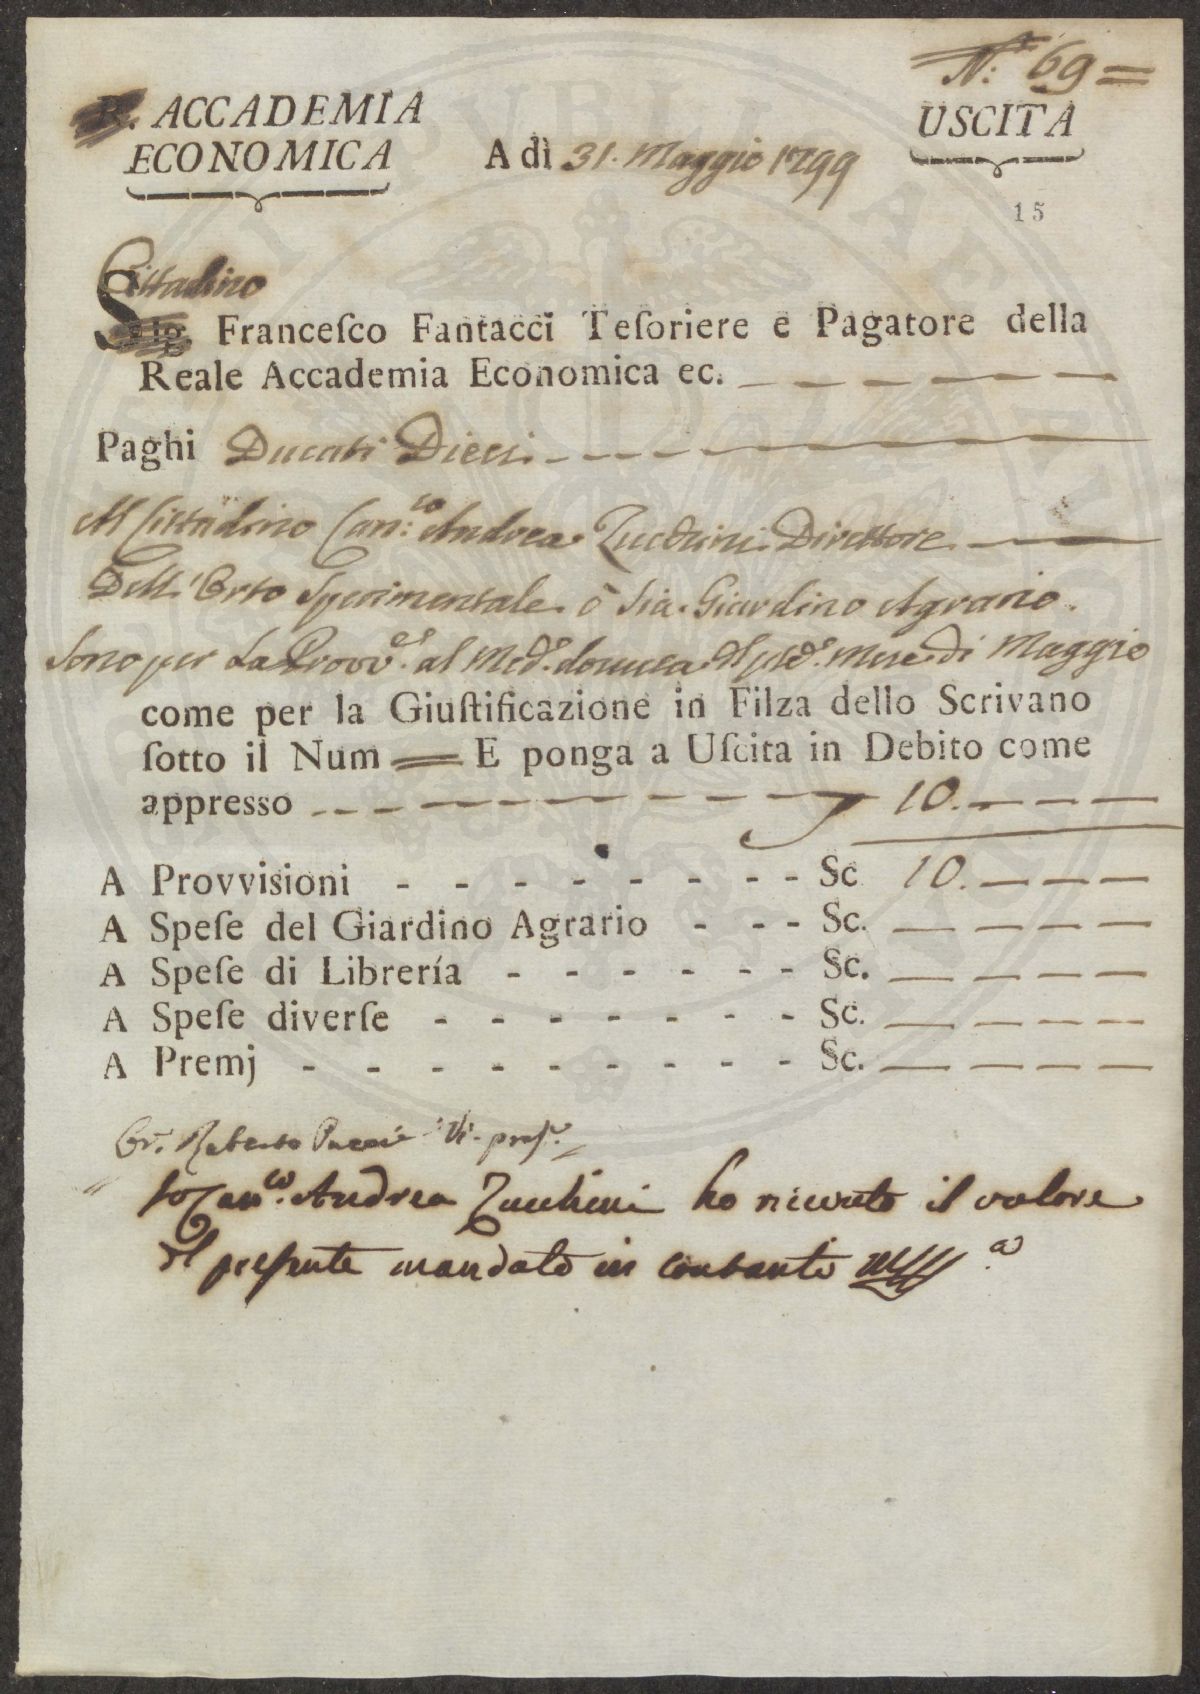 N.° 69 =
R. ACCADEMIA
ECONOMICA
USCITA
A dì 31. Maggio 1799
15
Cittadino
Sig. Franceſco Fantacci Teſoriere e Pagatore della
Reale Accademia Economica ec.
Paghi Ducati Dieci
Al Cittadino Can:co Andrea Zucchini Direttore
Dell'Orto Sperimentale ò sia Giardino Agrario.
Sono per La Provv.es al Med.o dovuta Del psd.o Mese di Maggio
come per la Giuſtificazione in Filza dello Scrivano
ſotto il Num E ponga a Uſcita in Debito come
appresso 10.
A Provvisioni - - - - - - - - Sc 10.
A Speſe del Giardino Agrario - - - Sc.
A Speſe di Librería - - - - - - Sc.
A Speſe diverſe - - - - - - - Sc.
A Premj - - - - - - - - - Sc.
Gr. Roberto Pucci Vi. - pres.e
Io Can.co Andrea Zucchini ho ricevuto il valore
del presente mandato in contanti